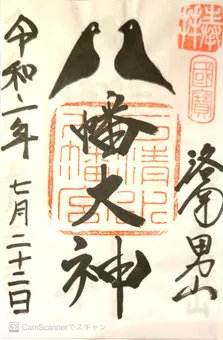 奉拝
國寶
洛南男山
八幡大神
石清水八幡宮
令和二年 七月二十二日
CS CamScannerでスキャン